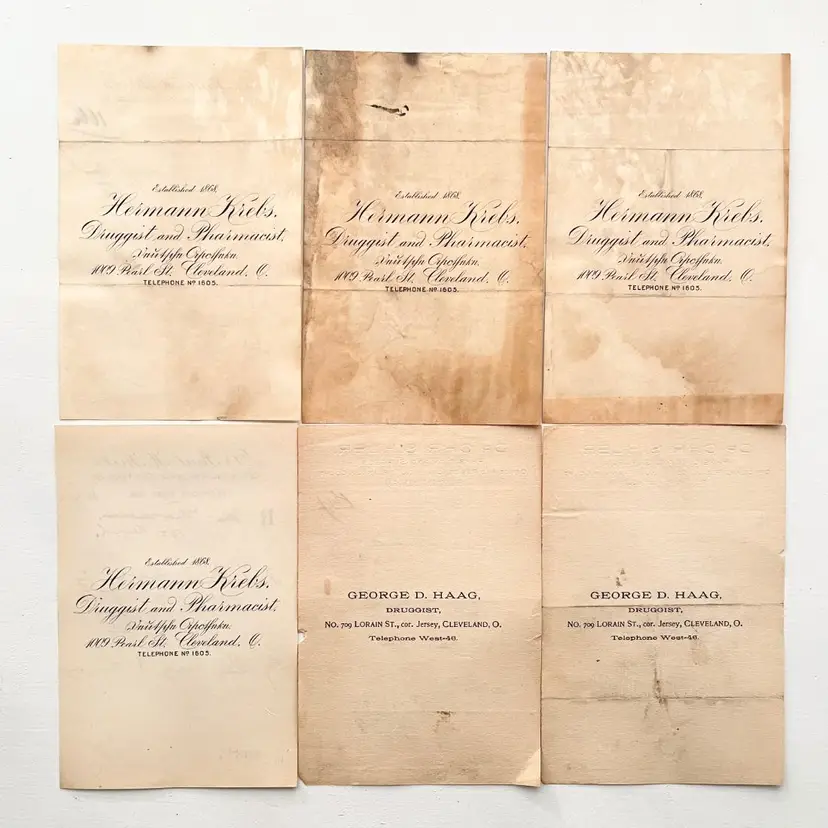 Established 1868.
Hermann Krebs.
Druggist and Pharmacist,
Deutsche Apotheke.
1009 Pearl St, Cleveland, O.
TELEPHONE Nº 1605.
Established 1868.
Hermann Krebs.
Druggist and Pharmacist,
Deutsche Apotheke.
1009 Pearl St, Cleveland, O.
TELEPHONE Nº 1605.
Established 1868.
Hermann Krebs.
Druggist and Pharmacist,
Deutsche Apotheke.
1009 Pearl St, Cleveland, O.
TELEPHONE Nº 1605.
Established 1868.
Hermann Krebs.
Druggist and Pharmacist,
Deutsche Apotheke.
1009 Pearl St, Cleveland, O.
TELEPHONE Nº 1605.
GEORGE D. HAAG,
DRUGGIST,
NO. 709 LORAIN ST., cor. Jersey, CLEVELAND, O.
Telephone West-46.
GEORGE D. HAAG,
DRUGGIST,
NO. 709 LORAIN ST., cor. Jersey, CLEVELAND, O.
Telephone West-46.